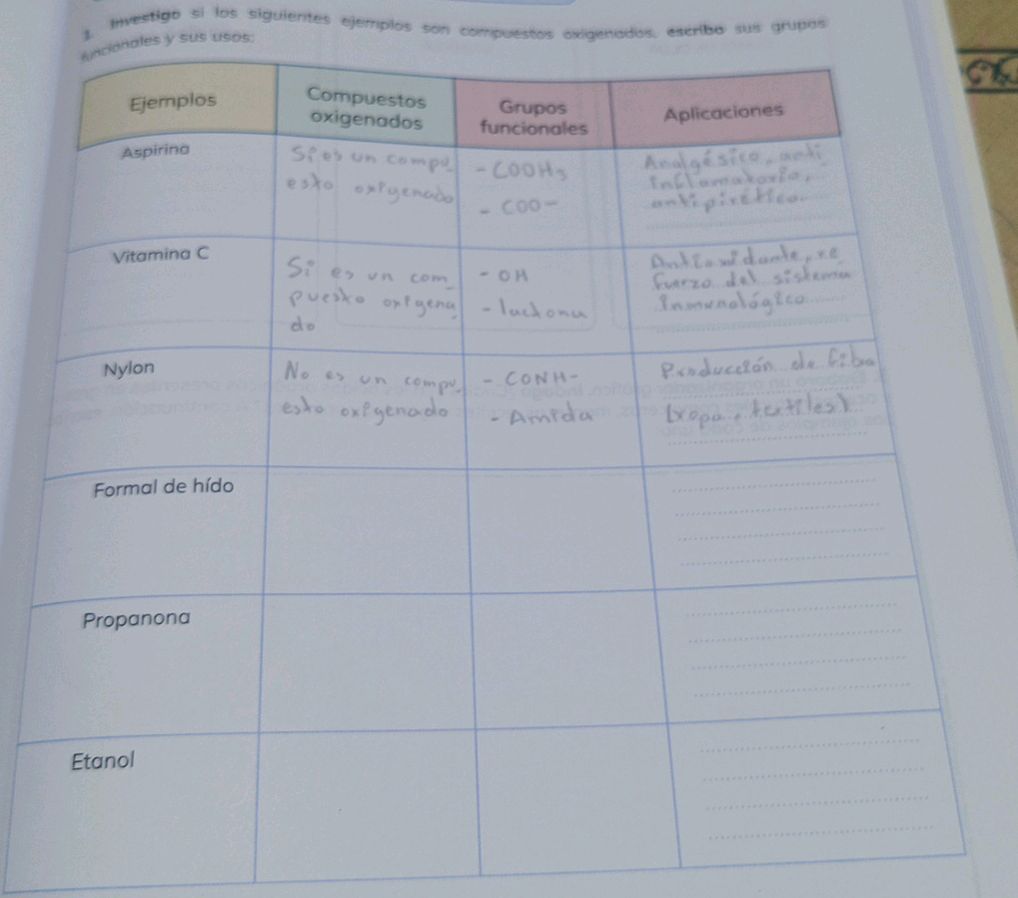 1. Investigo si los siguientes ejemplos son compuestos oxigenados, escribo sus grupos
funcionales y sus usos:
Ejemplos
Compuestos
oxigenados
Grupos
funcionales
Aplicaciones
Aspirina
Si es un compu_
esto oxigenado
- COOH3
- COO-
Analgésico, anti
inflamatorio,
antipirético.
Vitamina C
Si es un com_
puesto oxigena
do
- OH
- lactona
Antioxidante, re
fuerzo del sistema
inmunológico
Nylon
No es un compu_
esto oxigenado
- CONH-
- Amida
Producción de fiba
(ropa, textiles)
Formal de hído
Propanona
Etanol